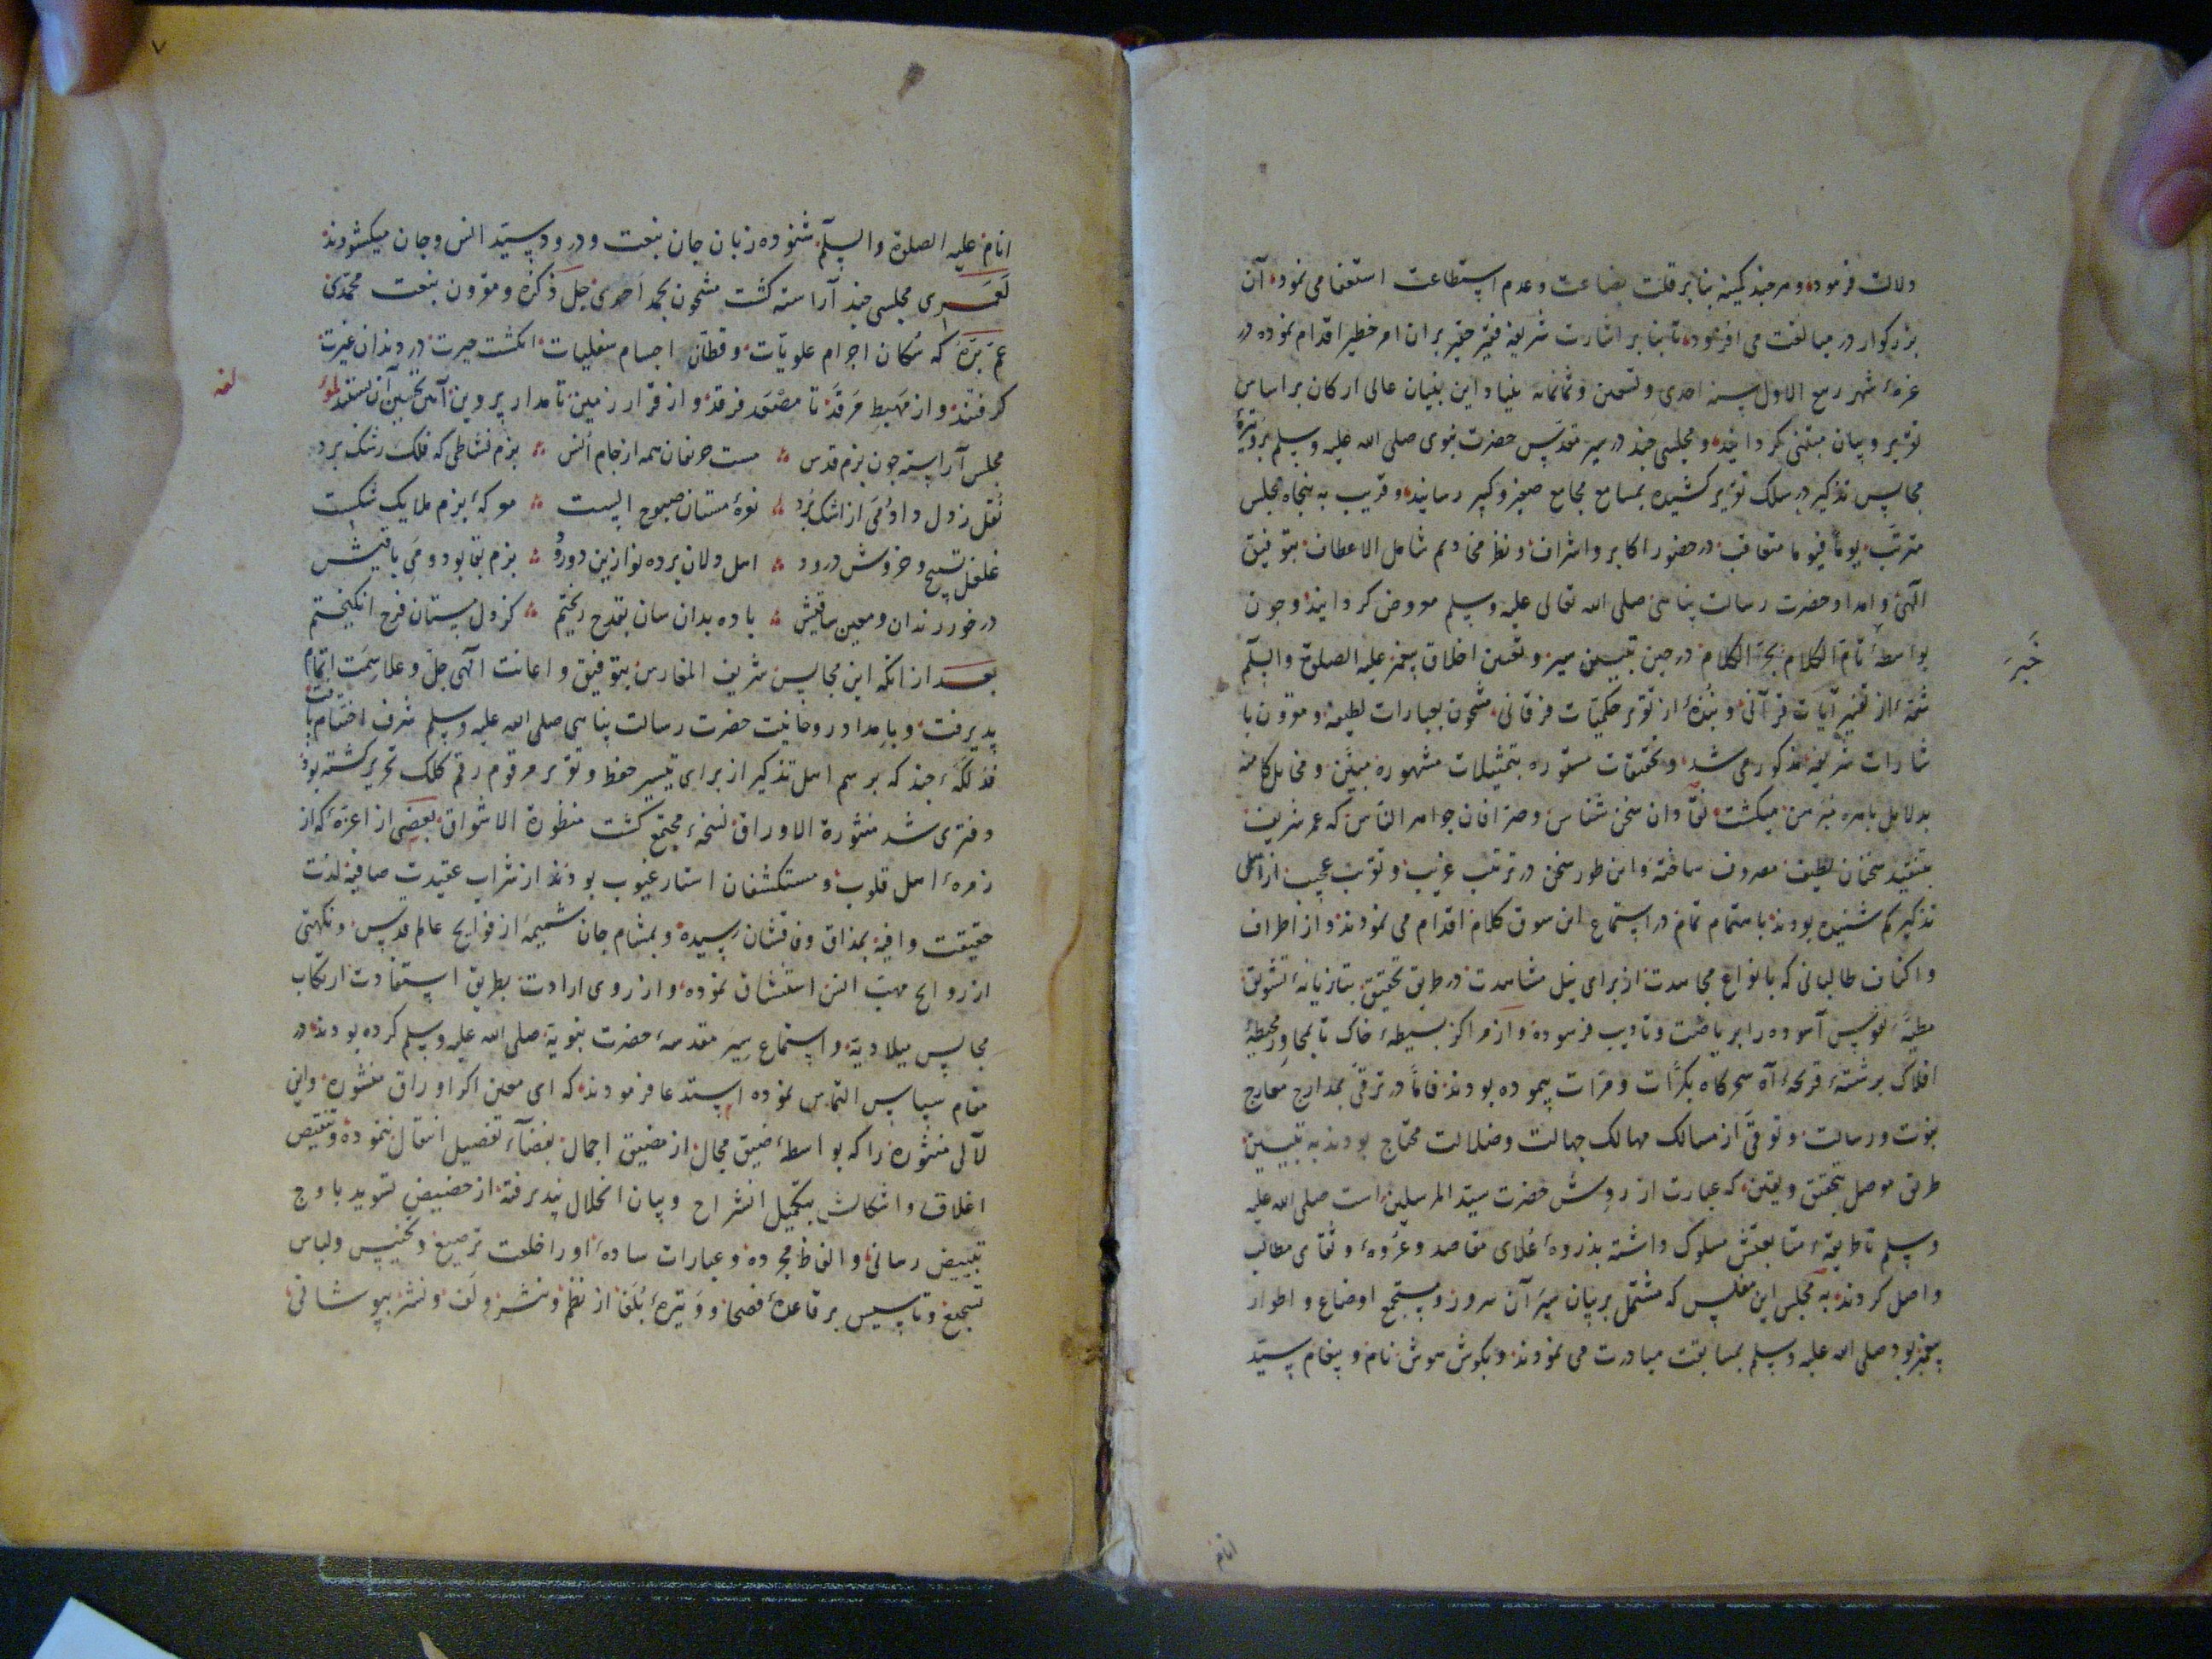 دلالت فرموده و هر چند کمینه بنا بر قلت بضاعت و عدم استطاعت استعفا می نمود آن
بزرکوار در مبالغت می افزود تا بنا بر اشارت شریفه فقیر حقیر بران امر خطیر اقدام نموده در
غرهٔ شهر ربیع الاول سنه احدی و تسعین و ثمانمائه بنیاد این بنیان عالی ارکان بر اساس
تقریر و بیان مبتنی کردانید و مجلسی چند در سیر مقدس حضرت نبوی صلی الله علیه و سلم بر وتیرهٔ
مجالس تذکیر در سلک تقریر کشیده بمسامع مجامع صغیر و کبیر رسانید و قریب به پنجاه مجلس
مترتب یوما فیوما متعاقب در حضور اکابر و اشراف و نظر مخادیم شامل الاعطاف بتوفیق
الهی و امداد حضرت رسالت پناهی صلی الله تعالی علیه و سلم معروض کردانید و چون
بواسطهٔ تام الکلام بجر الکلام در حین تبیین سیر و تعیین اخلاق پیغمبر علیه الصلوة والسلم
شمهٔ از تفسیر آیات قرآنی و نبذهٔ از تقریر حکمیات فرقانی مشحون بعبارات لطیفه و مقرون با
شارات شریفه مذکور می شد و تحقیقات مستوره بتمثیلات مشهوره مبین و مخایل کامنه
بدلایل باهره مبرهن میکشت نقادان سخن شناس و صرافان جواهر انفاس که عمر شریف
بتنقید سخنان لطیف مصروف ساخته و این طور سخن در ترتیب غریب و تقریب عجیب از اهل
تذکیر کم شنیده بودند باهتمام تمام در استماع این سوق کلام اقدام می نمودند و از اطراف
و اکناف طالبانی که بانواع مجاهدت از برای نیل مشاهدت در طریق تحقیق بتازیانهٔ تشویق
مطیهٔ نفوس آسوده را بریاضت و تادیب فرسوده و از مراکز بسیطهٔ خاک تا بمحاور محیطهٔ
افلاک برشتهٔ قریحهٔ آه سحرکاه بکرات و مرات پیموده بودند فاما در ترقی بمدارج معارج
نبوت و رسالت و توقی از مسالک مهالک جهالت و ضلالت محتاج بودند به تبیین
طریق موصل بتحقیق و یقین که عبارت از روش حضرت سید المرسلین است صلی الله علیه
و سلم تا طریقهٔ متابعتش مسلوک داشته بذروهٔ علای مقاصد و عروهٔ وثقای مطالب
واصل کردند به مجلس این مفلس که مشتمل بر بیان سیر آن سرور و مستجمع اوضاع و اطوار
پیغمبر بود صلی الله علیه و سلم بمسابقت مبادرت می نمودند و بکوش هوش نام و پیغام سید
خیر
انام
انام علیه الصلوة والسلم شنوده زبان جان بنعت و درود سید انس و جان میکشودند
لعمری مجلسی چند آراسته کشت مشحون بحمد احدی جل ذکره و مقرون بنعت محمدی
عم بره که سکان اجرام علویات و قطان اجسام سفلیات انکشت حیرت در دندان غیرت
کرفتند و از مهبط مرقد تا مصعد فرقد و از قرار زمین تا مدار پروین آمین تحسین آن بستند
لمؤلفه
مجلس آراسته چون بزم قدس ∴ مست حریفان همه از جام انس ∴ بزم نشاطی که فلک رشک برد
نقل ز دل داد و می از اشک برد ∴ نعرهٔ مستان صبوح الست ∴ معرکهٔ بزم ملایک شکست
غلغل تسبیح و خروش درود ∴ اهل دلان پرده نواز زین دو رود ∴ بزم بقا بود و می باقیش
در خور رندان و معین ساقیش ∴ باده بدان سان بقدح ریختم ∴ کز دل مستان فرح انکیختم
بعد از انکه این مجالس شریف المغارس بتوفیق و اعانت الهی جل و علا سمت اتمام
پذیرفت و بامداد روحانیت حضرت رسالت پناهی صلی الله علیه و سلم شرف اختتام یافت
فذلکهٔ چند که برسم اهل تذکیر از برای تیسیر حفظ و تقریر مرقوم رقم کلک تحریر کشته بود
دفتری شد منثورة الاوراق نسخهٔ مجتمع کشت منظورة الاشواق بعضی از اعزه که از
زمرهٔ اهل قلوب و مستکشفان استار غیوب بودند از شراب عقیدت صافیه لذت
حقیقت وافیه بمذاق وفاقشان رسیده و بمشام جان شمیمهٔ از فوایح عالم قدس و نکهتی
از روایح مهب انس استنشاق نموده و از روی ارادت بطریق استفادت ارتکاب
مجالس میلادیه و استماع سیر مقدسهٔ حضرت نبویه صلی الله علیه و سلم کرده بودند در
مقام سپاس التماس نموده استدعا فرمودند که ای معین اکر اوراق منشوره و این
لآلی منثوره را که بواسطهٔ ضیق مجال از مضیق اجمال بفضآء تفصیل انتقال ننموده و تنقیص
اغلاق و اشکالش بتکمیل انشراح و بیان انحلال نپذیرفته از حضیض تسوید باوج
تبییض رسانی و الفاظ مجرده و عبارات سادهٔ او را خلعت ترصیع و تجنیس و لباس
تسجیع و تاسیس بر قاعدهٔ فصحا و وتیرهٔ بلغا از نظم و نشر و لف و نشر بپوشانی